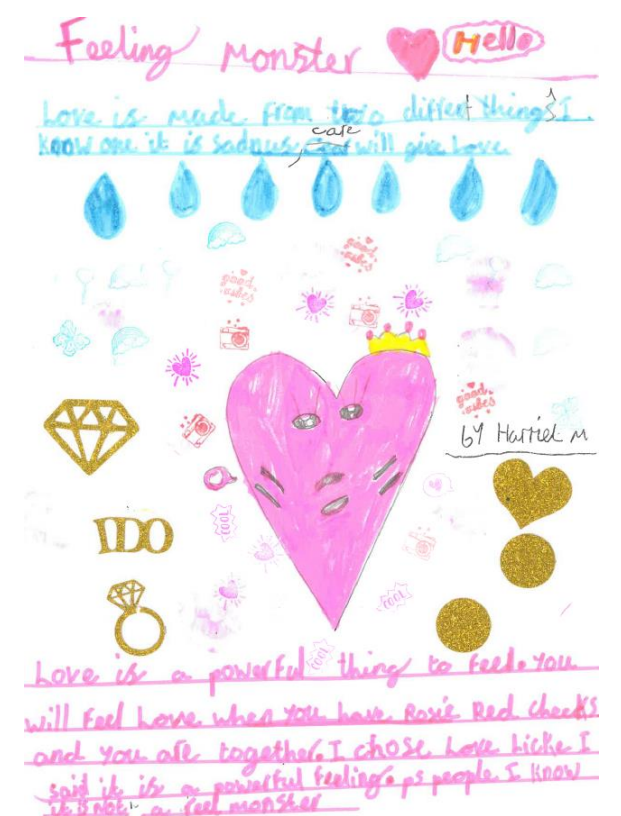 Feeling Monster Hello
Love is made from two differt things I
know one it is sadnus, care will give Love
good vibes
good vibes
good vibes
by Harriet M
IDO
COOL
COOL
COOL
Love is a powerful thing to feel. You
will Feel Love when you have Rosie Red cheeks
and you are together. I chose Love Licke I
said it is a powerful feeling. ps people I know
it is not a reel monster